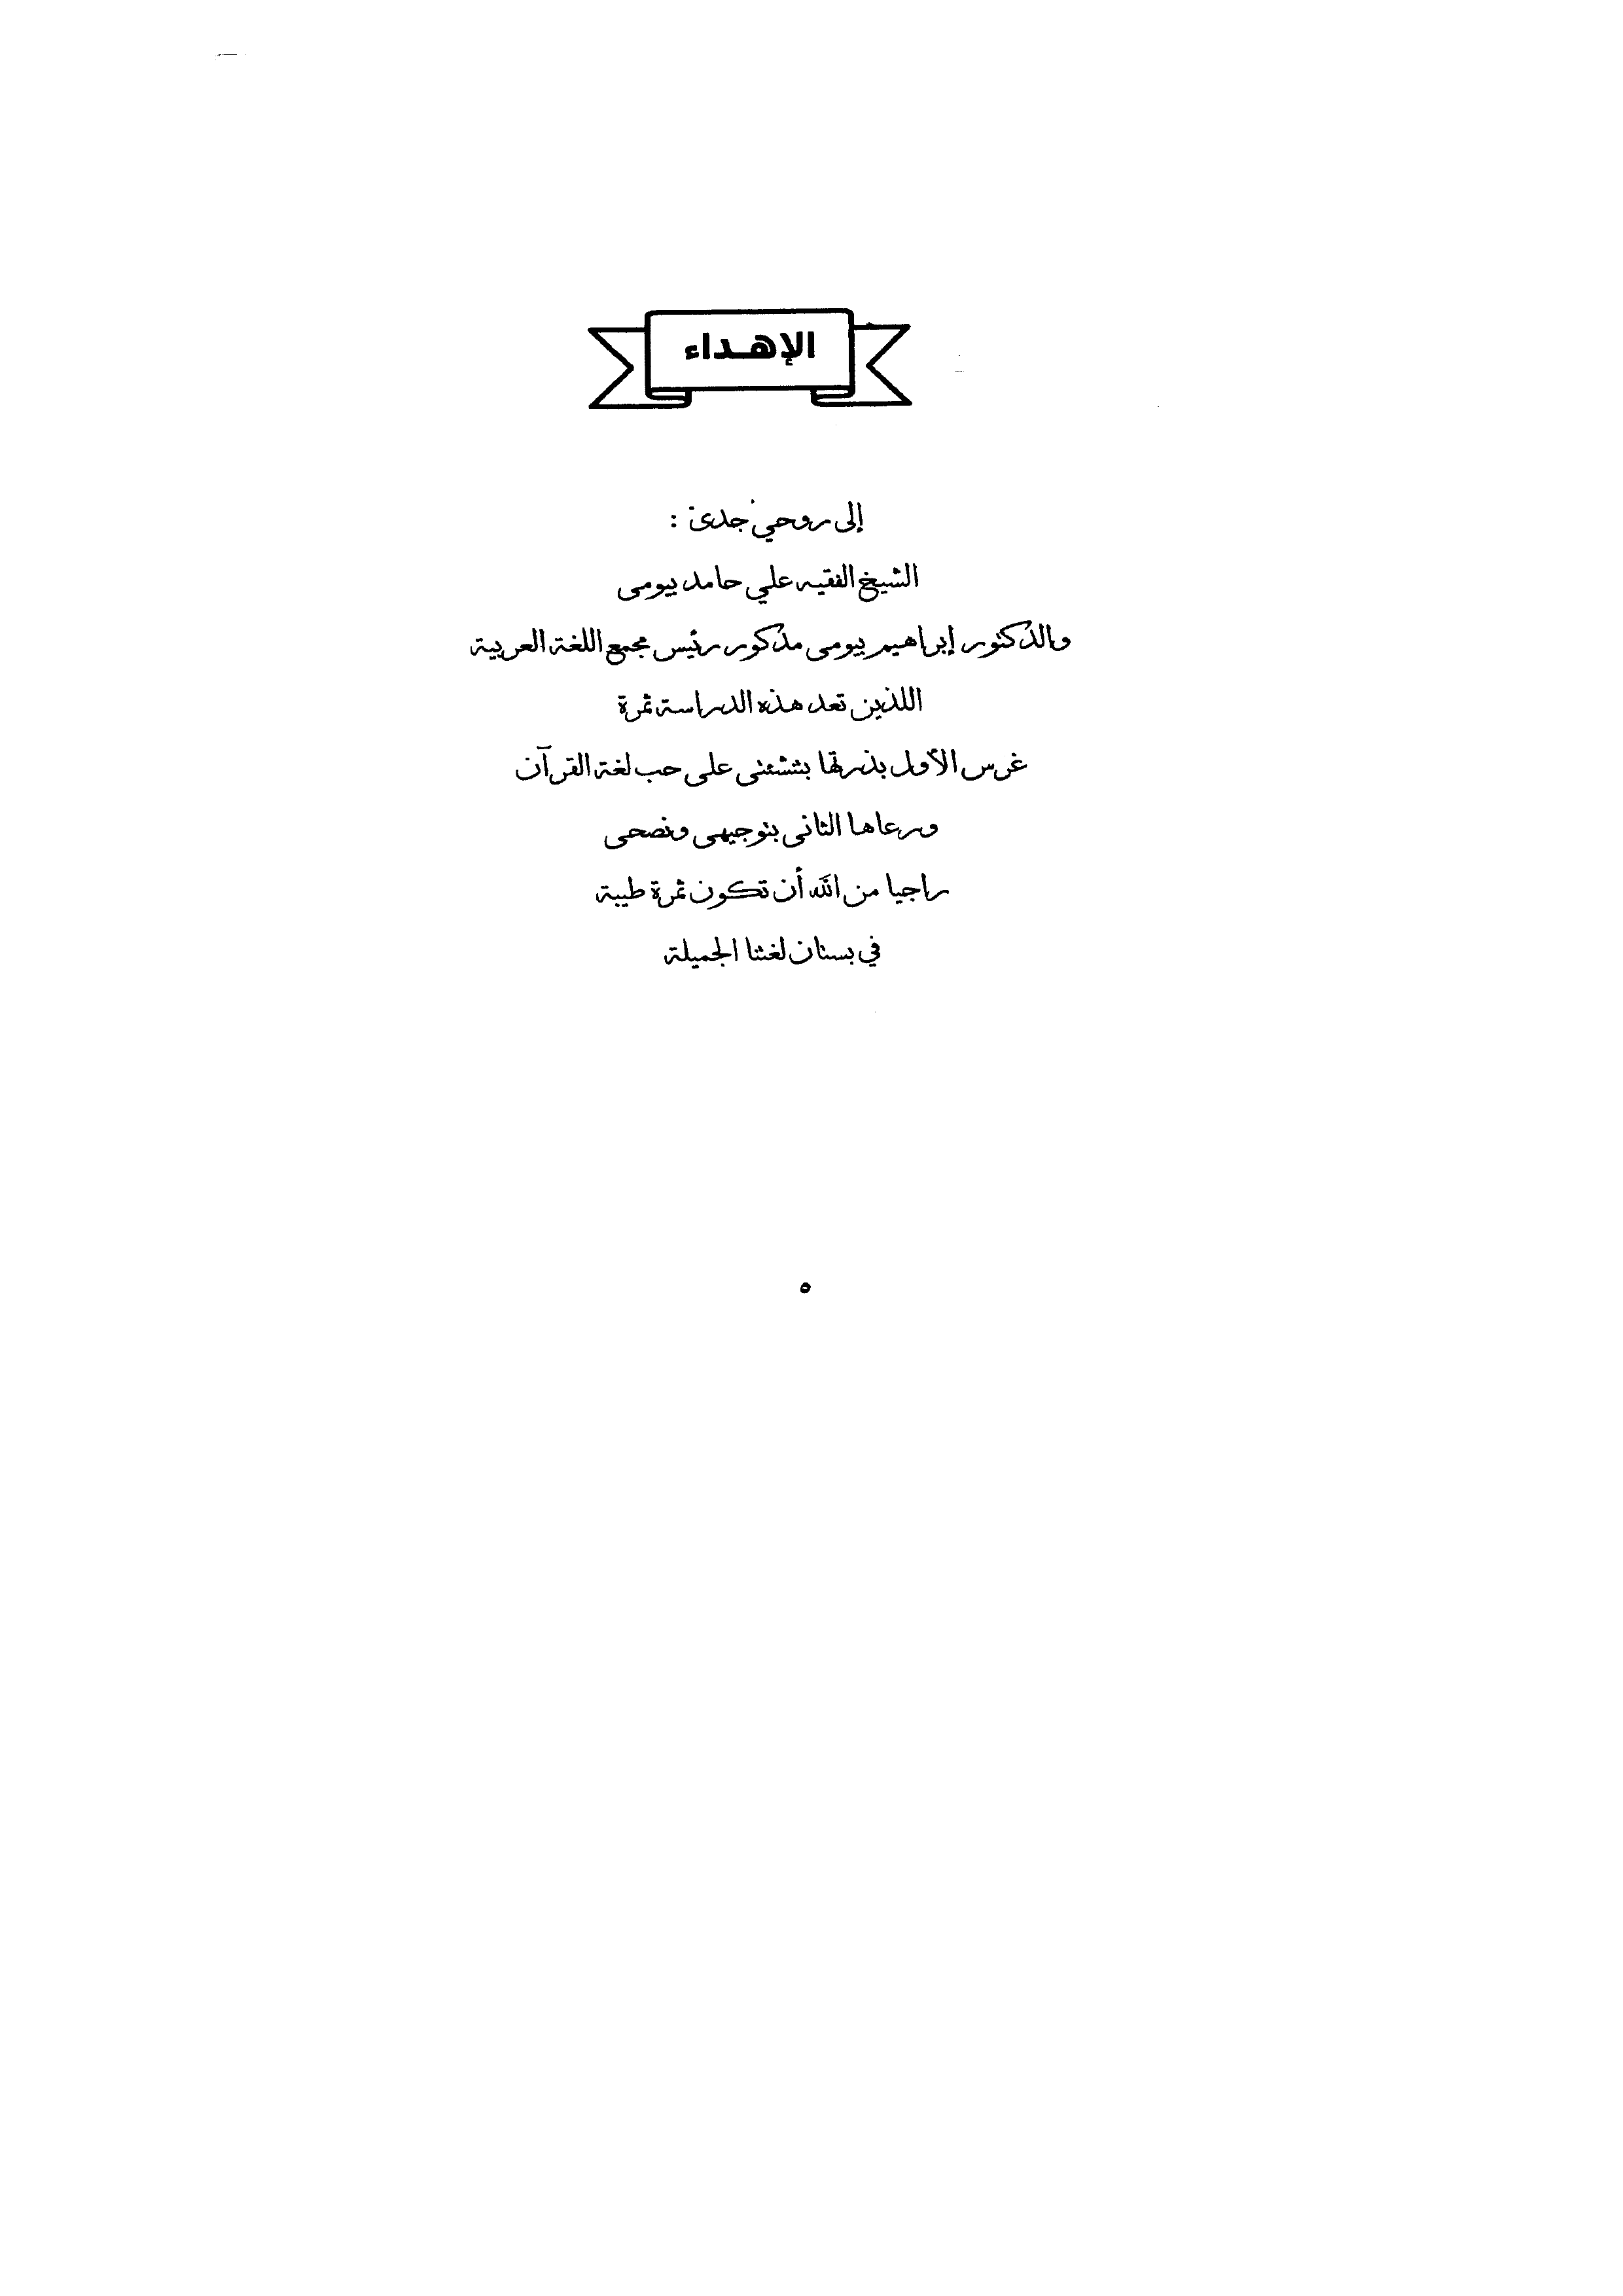 الإهداء
إلى روحي جدى :
الشيخ الفقيه علي حامد بيومى
والدكتور إبراهيم بيومى مدكور رئيس مجمع اللغة العربية
اللذين تعد هذه الدراسة ثمرة
غرس الأول بذرتها بتنشئتى على حب لغة القرآن
ورعاها الثانى بتوجيهى ونصحى
راجيا من الله أن تكون ثمرة طيبة
في بستان لغتنا الجميلة
٥